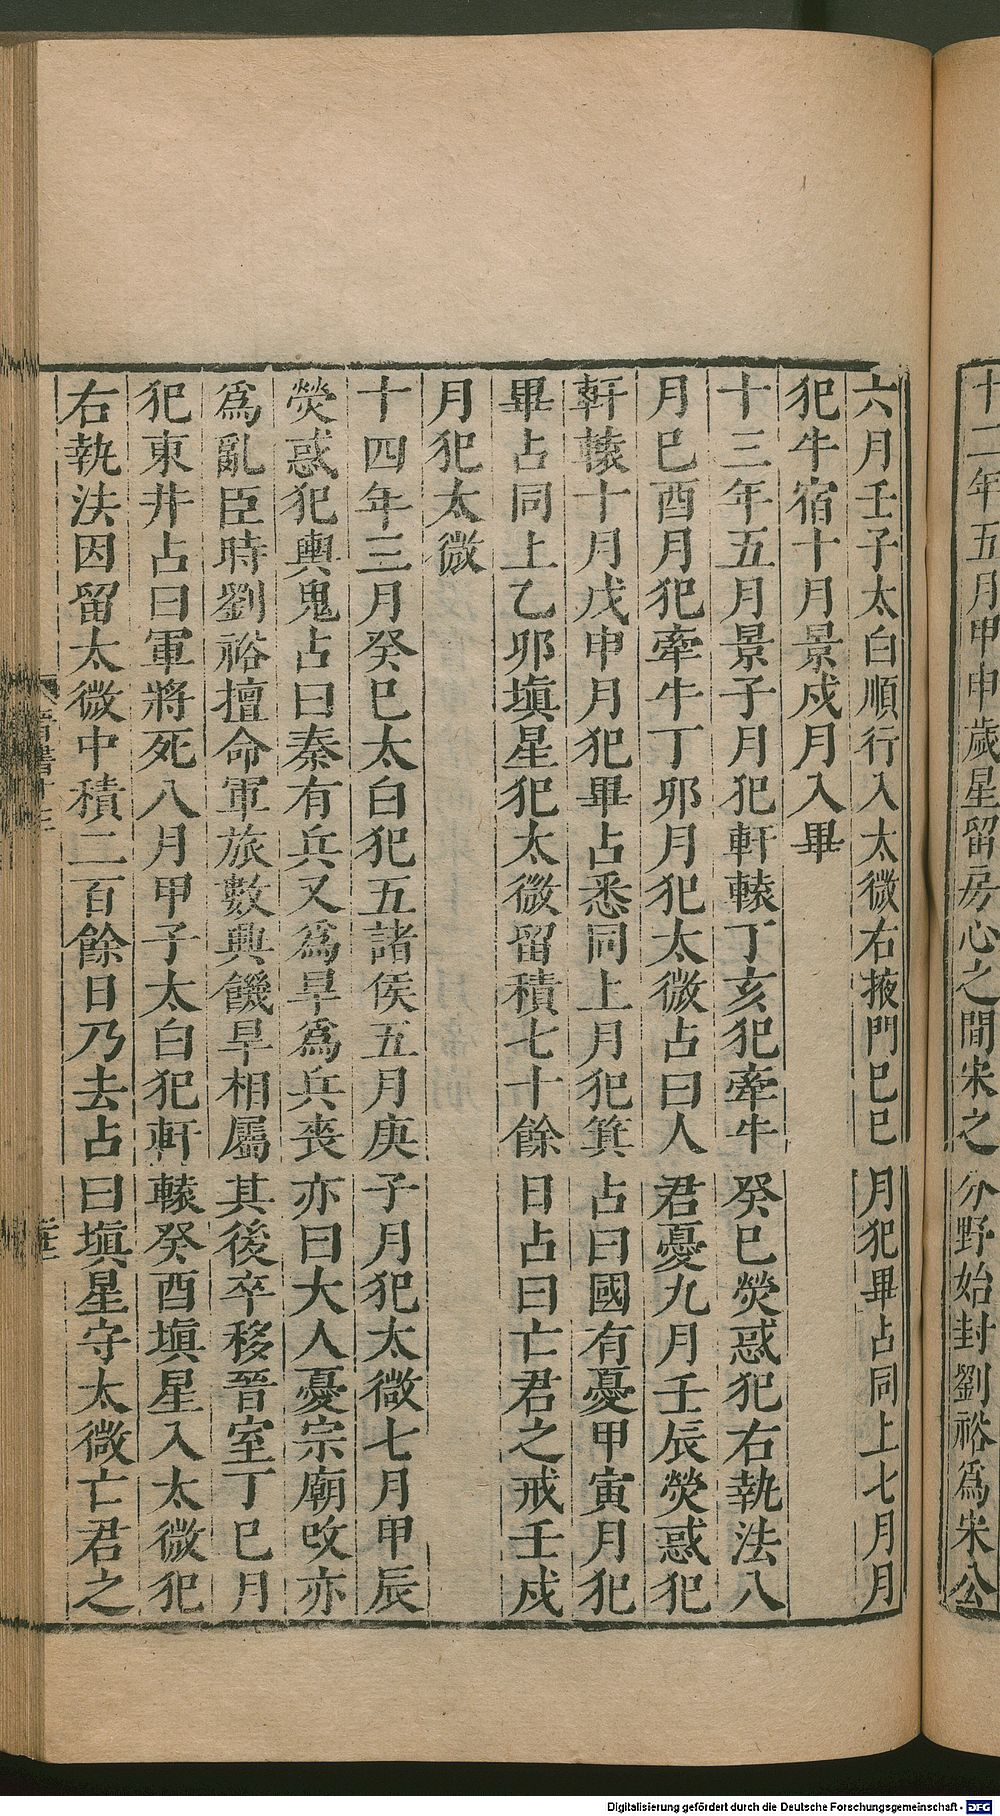 十二年五月甲申歲星留房心之間宋之分野始封劉裕爲宋公
六月壬子太白順行入太微右掖門巳巳月犯畢占同上七月月
犯牛宿十月景戍月入畢
十三年五月景子月犯軒轅丁亥犯牽牛癸巳熒惑犯右執法八
月巳酉月犯牽牛丁卯月犯太微占曰人君憂九月壬辰熒惑犯
軒轅十月戊申月犯畢占悉同上月犯箕占曰國有憂甲寅月犯
畢占同上乙卯塡星犯太微留積七十餘日占曰亡君之戒壬戍
月犯太微
十四年三月癸巳太白犯五諸侯五月庚子月犯太微七月甲辰
熒惑犯輿鬼占曰秦有兵又爲旱爲兵喪亦曰大人憂宗廟改亦
爲亂臣時劉裕擅命軍旅數興饑旱相屬其後卒移晉室丁巳月
犯東井占曰軍將死八月甲子太白犯軒轅癸酉塡星入太微犯
右執法因留太微中積二百餘日乃去占曰塡星守太微亡君之
晉書十三
Digitalisierung gefördert durch die Deutsche Forschungsgemeinschaft - DFG